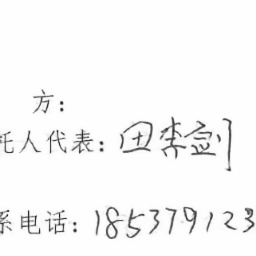 方：
托人代表：田李剑
系电话：185379123